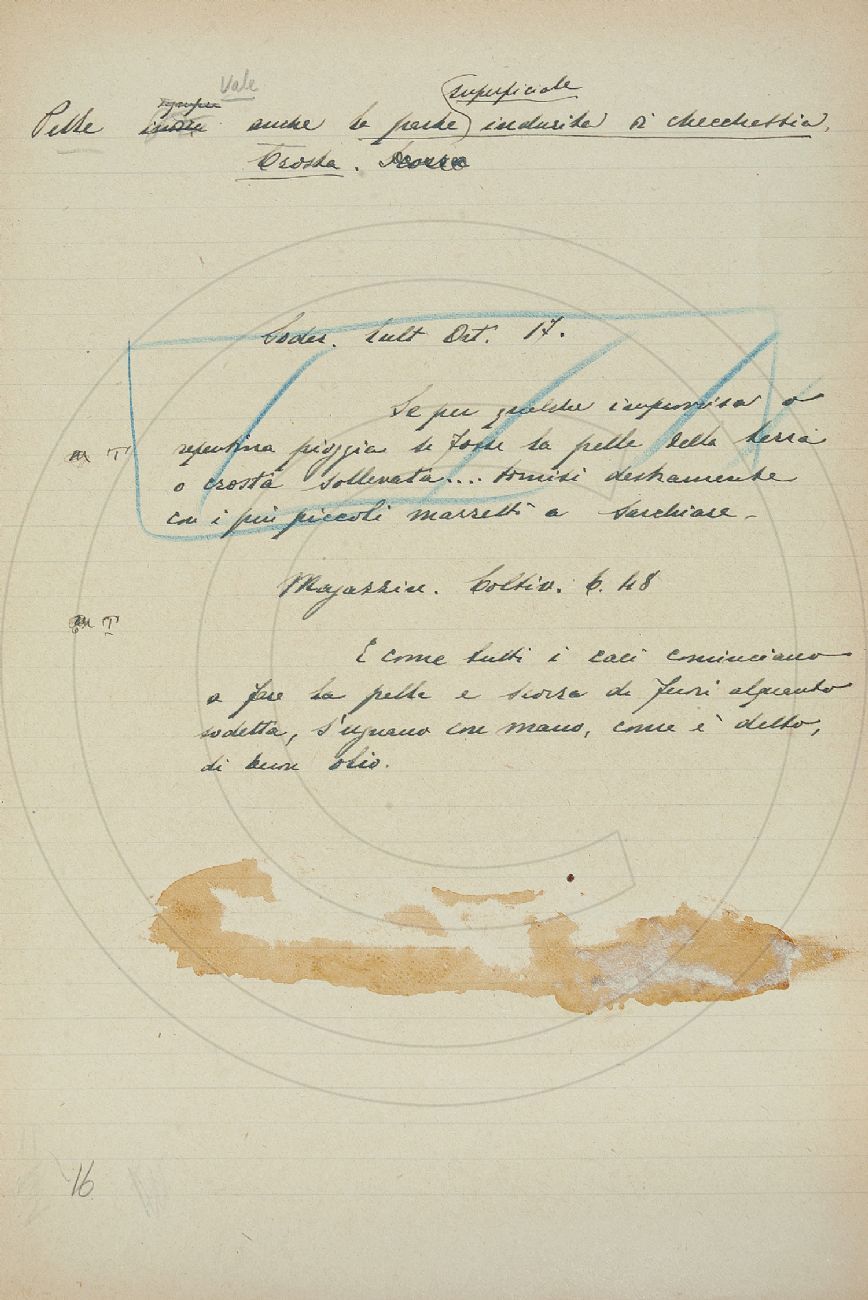 Vale
superficiale
Pelle anche la parte indurita di checchessia,
Crosta.
Soder. Cult Ort. 17.
Se per qualche improvvisa o
repentina pioggia si fosse la pelle della terra
m T
o crosta sollevata.... tornisi destramente
con i più piccoli marretti a sarchiare.
Magazzin. Coltiv. C. 48
m T
E come tutti i caci cominciano
a fare la pelle e scorza di fuori alquanto
sodetta, s'ugnano con mano, come è detto,
di buon olio.
16